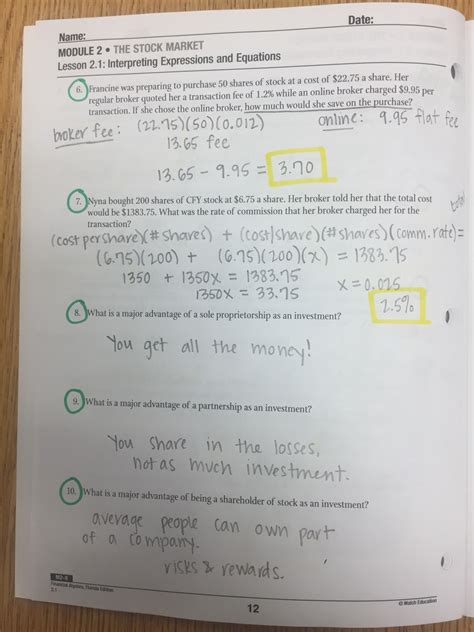 Name:
Date:
MODULE 2 • THE STOCK MARKET
Lesson 2.1: Interpreting Expressions and Equations
6. Francine was preparing to purchase 50 shares of stock at a cost of $22.75 a share. Her
regular broker quoted her a transaction fee of 1.2% while an online broker charged $9.95 per
transaction. If she chose the online broker, how much would she save on the purchase?
broker fee: (22.75)(50)(0.012)
online: 9.95 flat fee
13.65 fee
13.65 - 9.95 = 3.70
7. Nyna bought 200 shares of CFY stock at $6.75 a share. Her broker told her that the total cost
would be $1383.75. What was the rate of commission that her broker charged her for the
transaction?
total
(cost per share)(# shares) + (cost/share)(# shares)(comm. rate)=
(6.75)(200) + (6.75)(200)(x) = 1383.75
1350 + 1350x = 1383.75
x = 0.025
1350x = 33.75
2.5%
8. What is a major advantage of a sole proprietorship as an investment?
You get all the money!
9. What is a major advantage of a partnership as an investment?
You share in the losses,
not as much investment.
10. What is a major advantage of being a shareholder of stock as an investment?
average people can own part
of a company.
risks & rewards.
Financial Algebra, Florida Edition
2.1
12